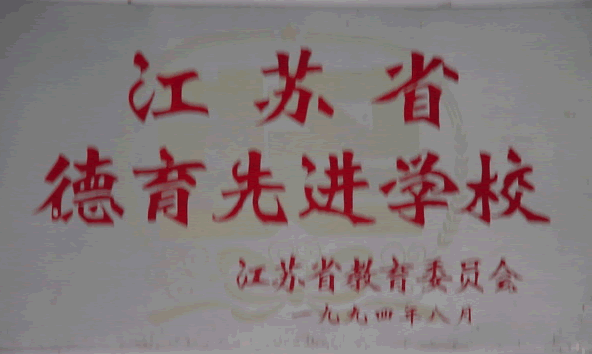 江苏省
德育先进学校
江苏省教育委员会
一九九四年八月